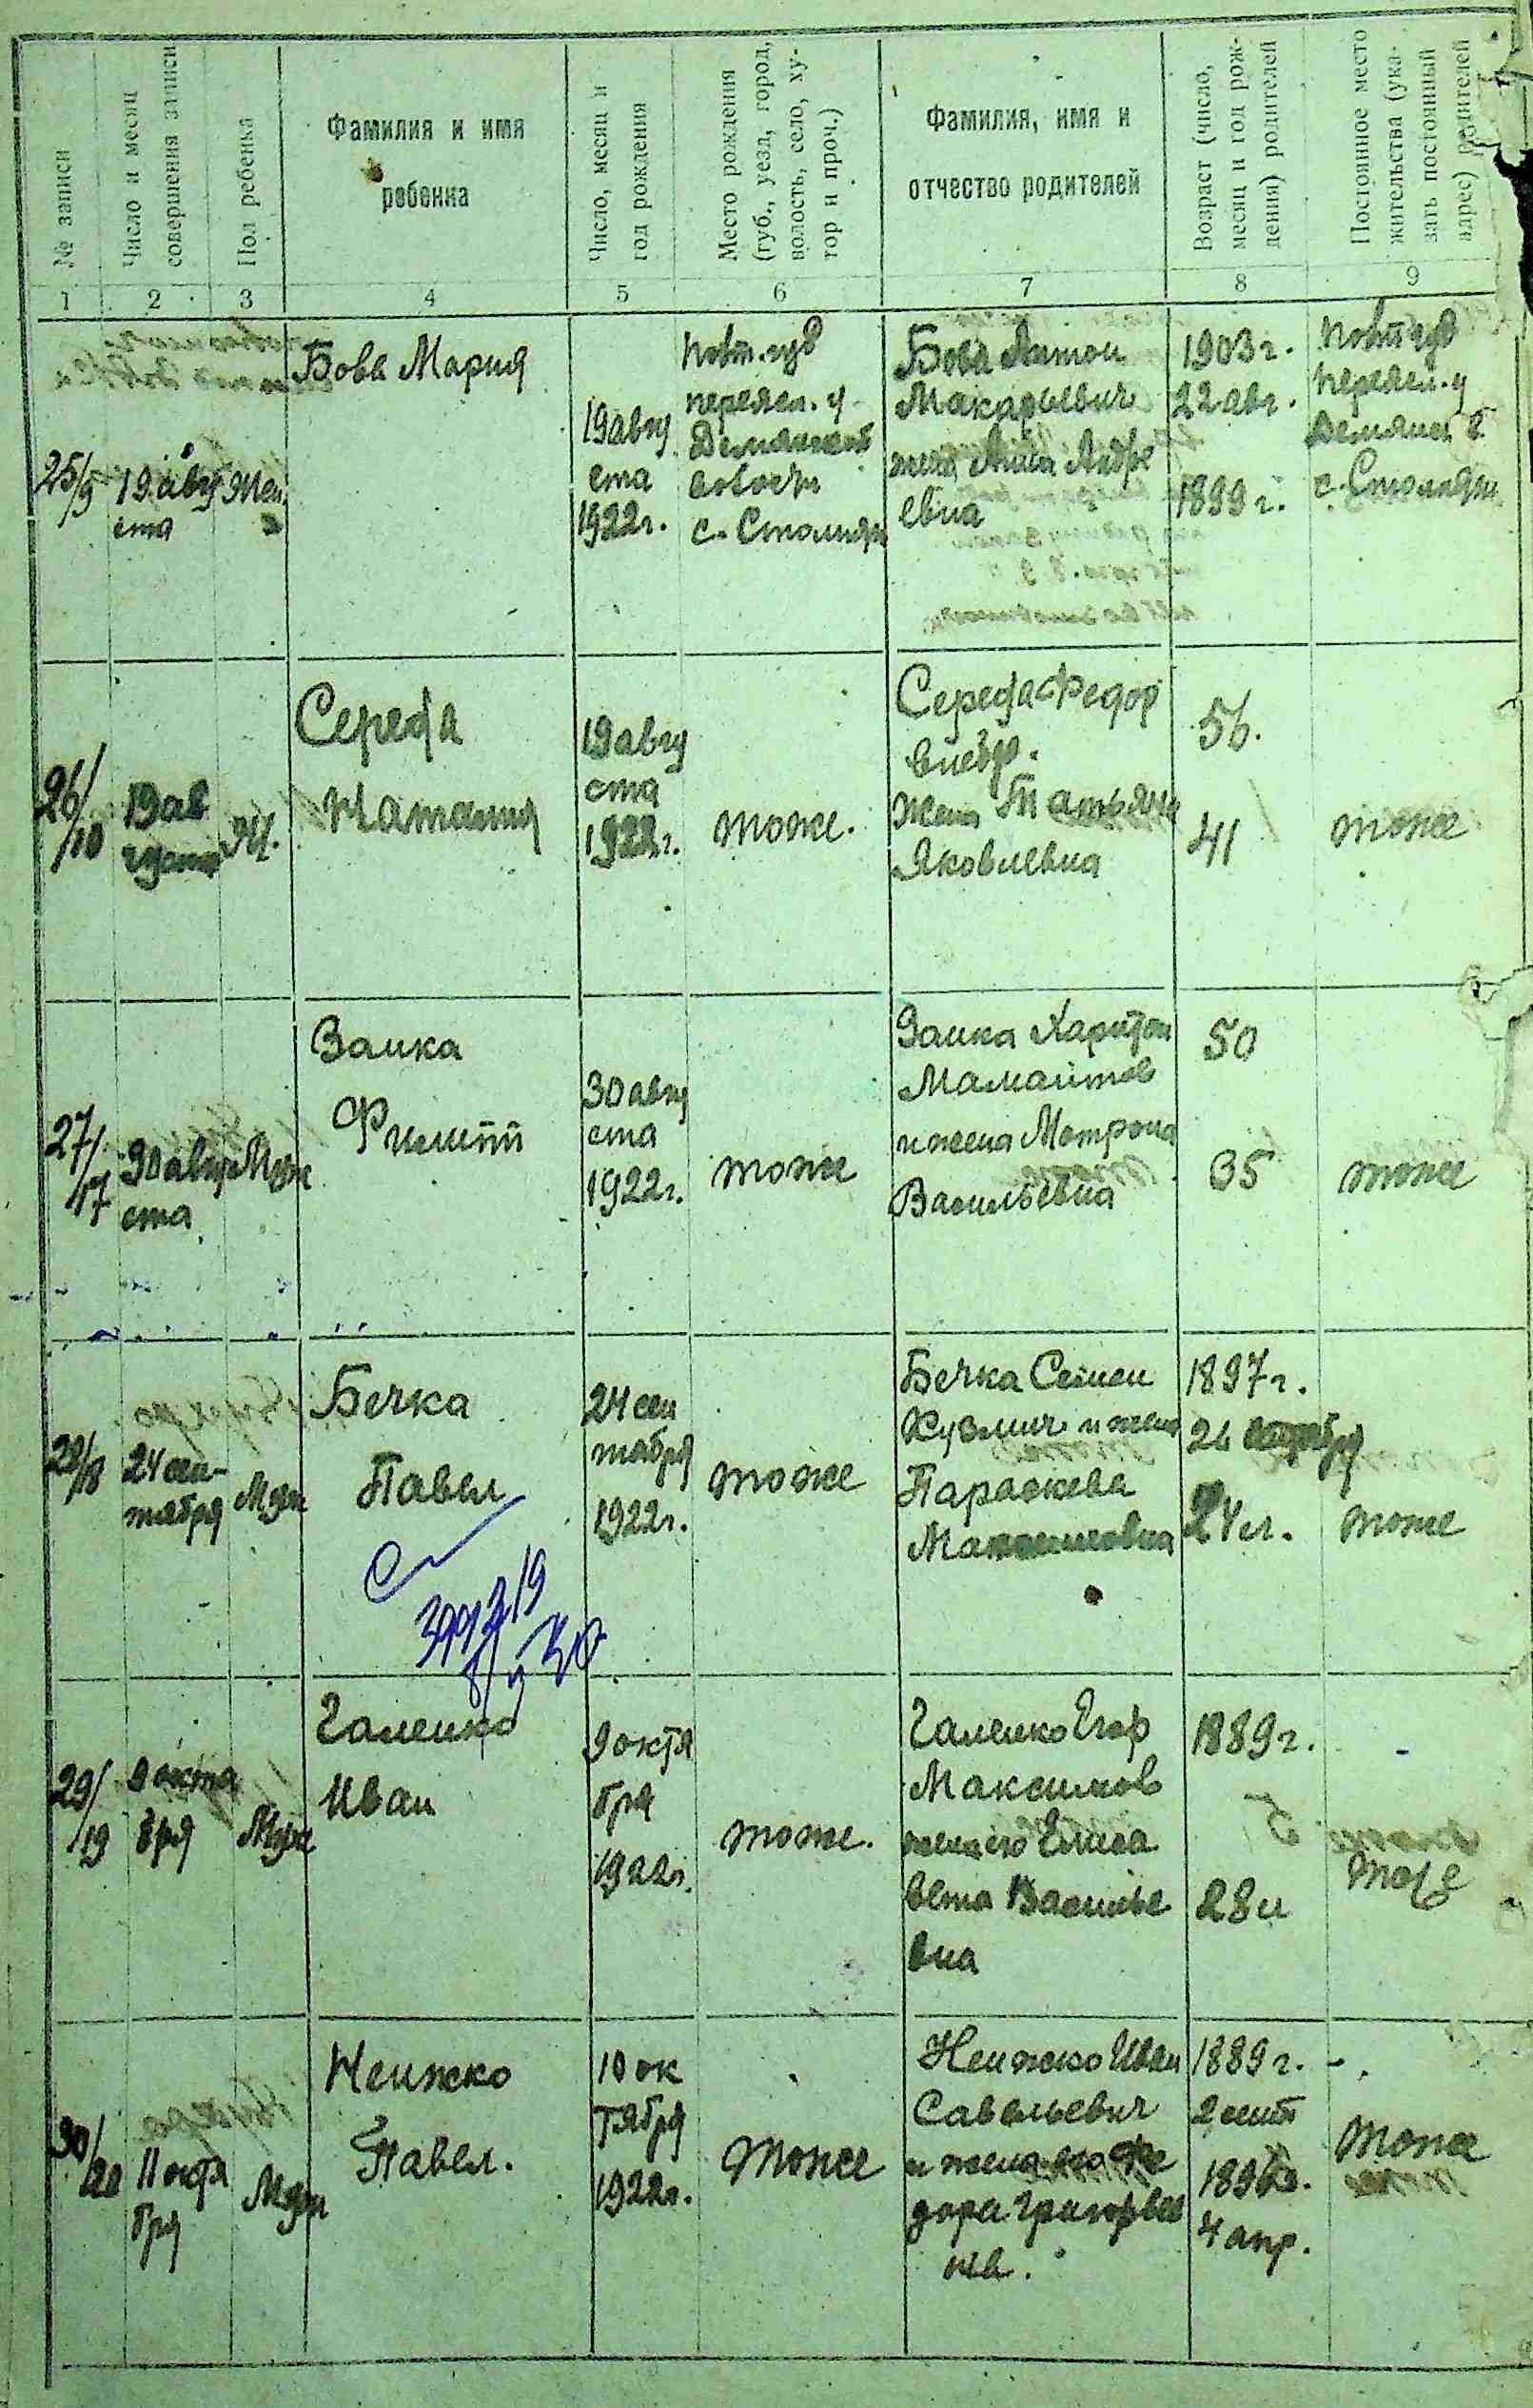 № записи
Число и месяц
совершения записи
Пол ребенка
Фамилия и имя
ребенка
Число, месяц и
год рождения
Место рождения
(губ., уезд, город,
волость, село, ху-
тор и проч.)
Фамилия, имя и
отчество родителей
Возраст (число,
месяц и год рож-
дения) родителей
Постоянное место
жительства (ука-
зать постоянный
адрес) родителей
1 2 3 4 5 6 7 8 9
25/9
19 авгу
ста
Жен
Бова Мария
19 авгу
ста
1922г.
Полт. губ
переясл. у
Демянской
волости
с. Столпяги
Бова Антон
Макарьевич
жена Анна Андре
евна
1903 г.
22 авг.
1899 г.
Полт губ
Переясл. у
Демянск. в.
с. Столпяги
26/10
19 ав
густа
Ж.
Середа
Наталия
19 авгу
ста
1922г.
тоже.
Середа Федор
жена Татьяна
Яковлевна
56.
41
тоже
27/17
30 авгу
ста
Муж
Заика
Филипп
30 авгу
ста
1922г.
тоже
Заика Харитон
и жена Мотрона
Васильевна
50
35
тоже
28/18
24 сен-
тября
Муж
Бечка
Павел
24 сен
тября
1922г.
тоже
Бечка Семен
Кузмич и жена
Параскева
Максимовна
1897 г.
24 г.
тоже
29/19
9 октя
бря
Муж
Галенко
Иван
9 октя
бря
1922г.
тоже.
Галенко Егор
Максимов
жена его Елиса
вета Василье
вна
1889 г.
28 л
тоже
30/20
11 октя
бря
Муж
Неижко
Павел.
10 ок
тября
1922г.
Тоже
Неижко Иван
Савельевич
и жена его Фе
дора Григорьев
на.
1889 г.
2 сент
4 апр.
тоже